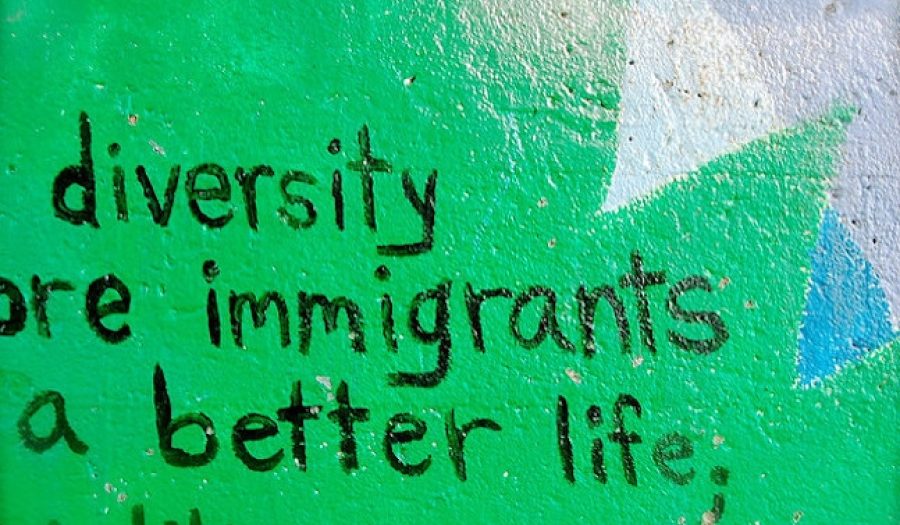 diversity
ore immigrants
a better life;